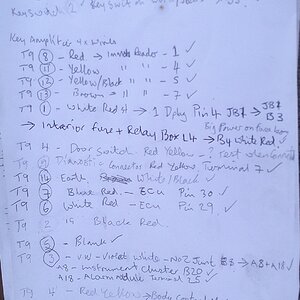 Key Switch 2 Key Switch
Key Amplifier 4 x Wires
T9 (8) - Red → Immob Reader - 1 ✓
T9 (11) - Yellow " " - 4 ✓
T9 (12) - Yellow/Black " " - 5 ✓
T9 (13) - Brown → " " - 7 ✓
T9 (1) - White Red st → 1 Dply Pin 4 JB7 → JB7 B3
→ Interior fuse + Relay Box L4 → By White Red
Big Power on fuse box
T9 4 - Door Switch Red Yellow - Test when Connected
T9 Diagnostic Connector Red Yellow, Terminal 7 ✓
T9 (14) Earth White/Black ✓
T9 (7) Blue Red - ECU Pin 30 ✓
T9 (6) White Red - ECU Pin 29 ✓
T9 2 Black Red
T9 (5) - Blank ✓
T9 (3) - VW - Violet White - No 2 Junt → A8 + A18 ✓
A8 - Instrument Cluster B20 ✓
A18 - Alarm module Terminal 25
T9 4 - Red Yellow → Body